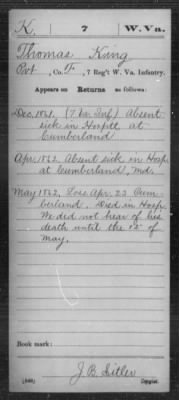 K. 7 W. Va.
Thomas King
Pvt, Co. F, 7 Reg't W. Va. Infantry.
Appears on
Returns as follows:
Dec. 1861. (7 Va Inf) Absent
sick in Hospitl at
Cumberland
Apr. 1862. Absent sick in Hosp
at Cumberland, Md.
May 1862, Loss Apr. 23 Cum-
berland. Died in Hosp.
We did not hear of his
death until the 15" of
May.
Book mark:
J. B. Sitler
(546) Copyist.